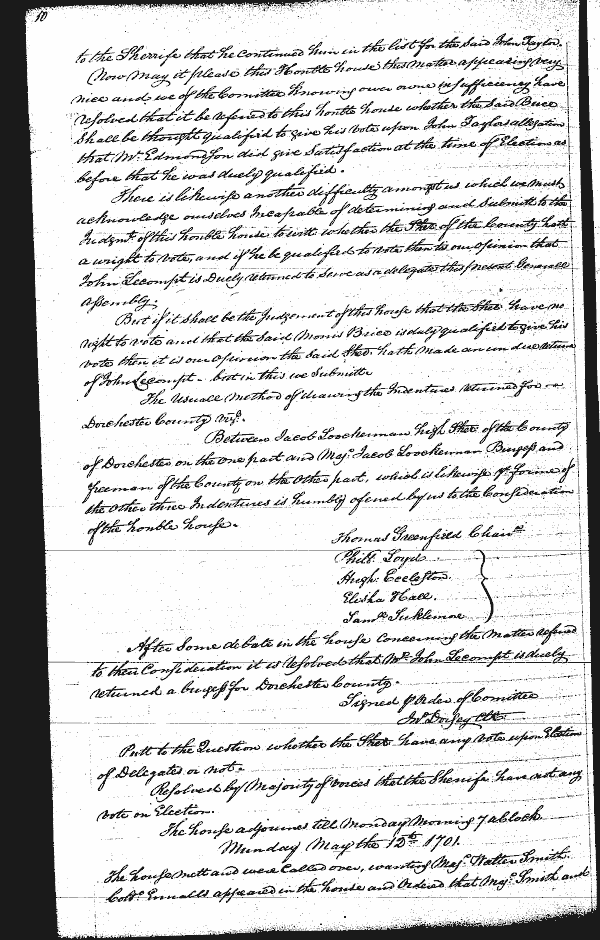 10
to the Sherrife that he continued him in the list for the said John Taylor.
Now may it please this Honble house this matter appearing very
nice and we of the Comittee knowing over owne insufficiency have
resolved that it be referred to this honble house whether the Said Brice
Shall be thought qualified to give his vote upon John Taylors allegation
that Mr. Edmondson did give Satisfaction at the time of Election as
before that he was duely qualified.
There is likewise another difficulty amongst us which we must
acknowledge ourselves Incapable of determining and Submitt to the
Judgmt. of this honble house to witt whether the Sher. of the County hath
a wright to vote, and if he be qualified to vote then tis our opinion that
John Lecompt is Duely returned to serve as a delegate this present Generall
assembly.
But if it shall be the Judgement of this house that the Sher. have no
right to vote and that the said Morris Brice is duly qualified to give his
vote then it is our opinion the said Sher. hath made an un due returne
of John Lecompt - but in this we Submitte
The usuall method of drawing the Indentures returned for
Dorchester County vizt.
Between Jacob Loockerman high Sher. of the County
of Dorchester on the one part and Majr. Jacob Loockerman Burgess and
freeman of the County on the Other part, which is likewise ye forme of
the other three Indentures is humbly offered by us to the Consideration
of the honble house.
Thomas Greenfield Chairn.
Phill. Loyd
Hugh Eccleston
Elisha Hall
Saml.
After Some debate in the house Concerning the matter referred
to their Consideration it is resolved that Mr. John Lecompt is duely
returned a burgess for Dorchester County.
Signed p Order of Comittee
Jno. Dorsey Clk
Putt to the Question whether the Sher. have any vote upon Election
of Delegates or not.
Resolved by Majority of voices that the Sherife have not any
vote on Election.
The house adjournes till Monday Morning 7 a Clock
Munday May the 12th 1701.
The house mett and were Called over, wanting Majr. Walter Smith
Collo. Ennalls appeared in the house and Ordered that Majr. Smith and